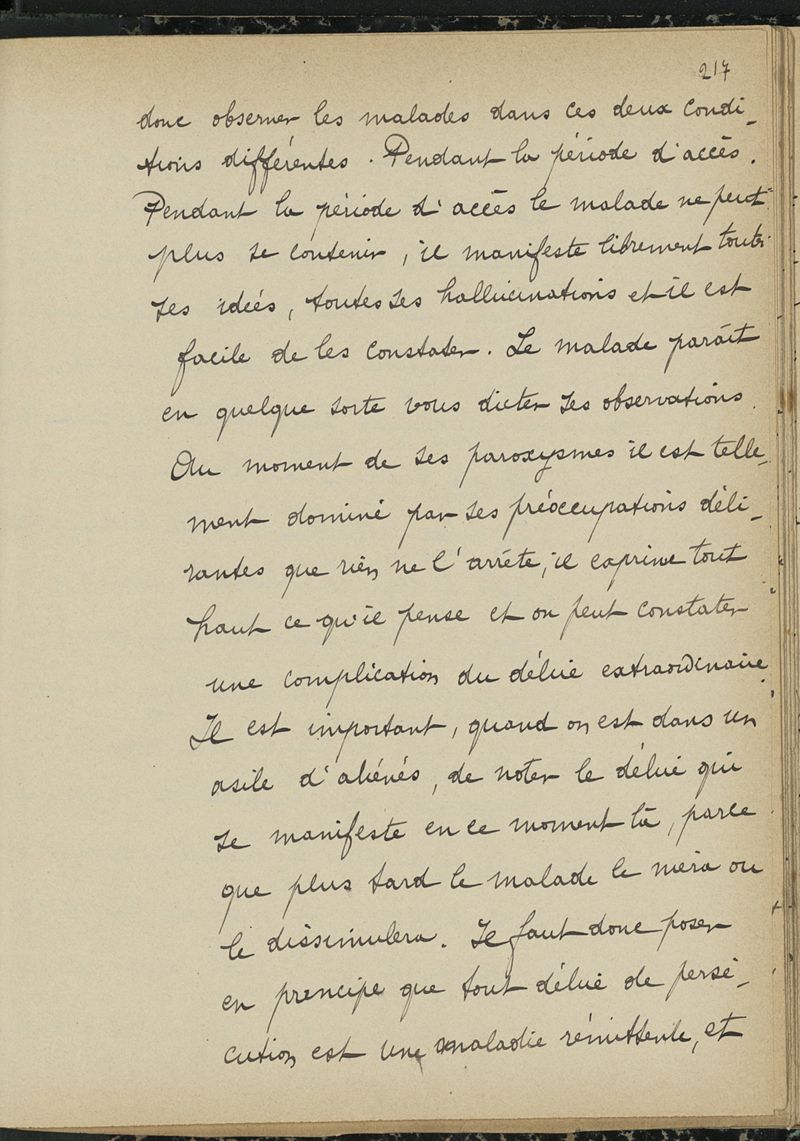 217
donc observer les malades dans ces deux condi-
tions différentes. Pendant la période d'accès.
Pendant la période d'accès le malade ne peut
plus se contenir, il manifeste librement toutes
ses idées, toutes ses hallucinations et il est
facile de les constater. Le malade paraît
en quelque sorte vous dicter ses observations.
Au moment de ses paroxysmes il est telle-
ment dominé par ses préoccupations déli-
rantes que rien ne l'arrête, il exprime tout
haut ce qu'il pense et on peut constater
une complication du délire extraordinaire.
Il est important, quand on est dans un
asile d'aliénés, de noter le délire qui
se manifeste en ce moment là, parce
que plus tard le malade le niera ou
le dissimulera. Il faut donc poser
en principe que tout délire de persé-
cution est une maladie rémittente, et